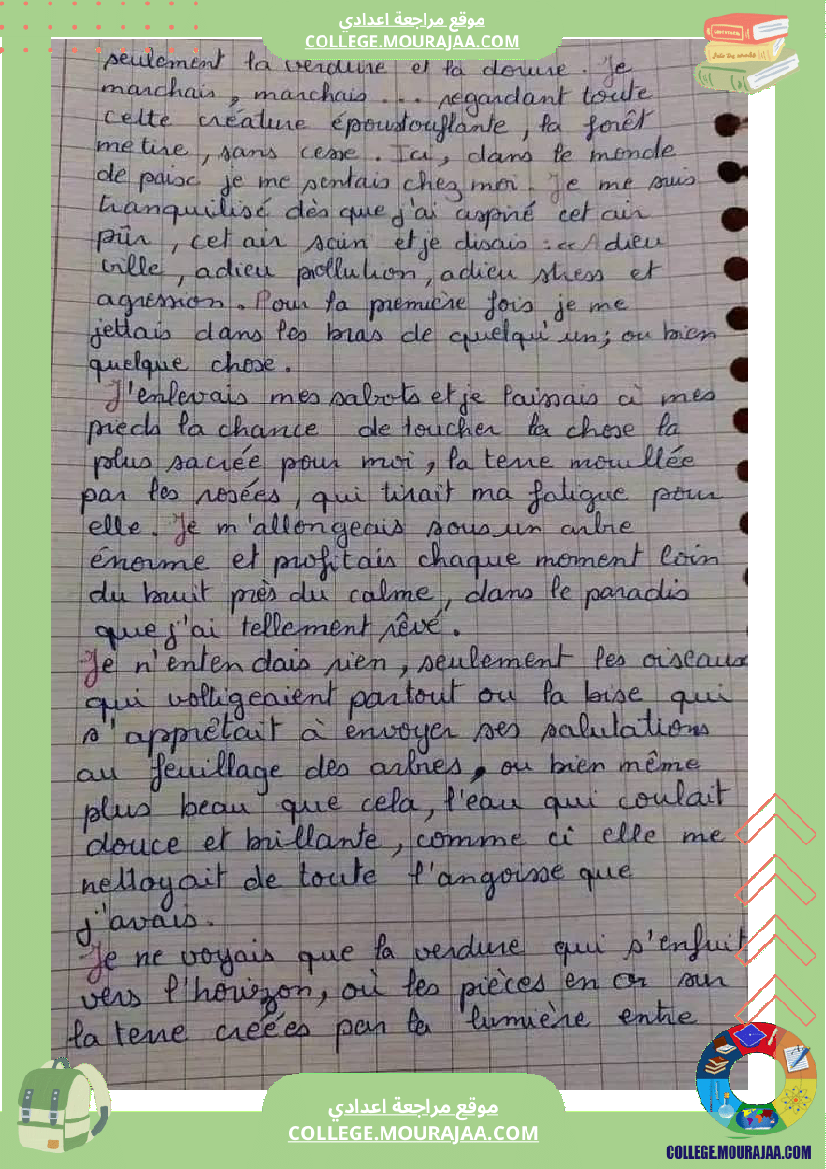 موقع مراجعة اعدادي
COLLEGE.MOURAJAA.COM
seulement la verdure et la douce. Je
marchais, marchais ... regardant toute
cette créature époustouflante, la forêt
me tire, sans cesse. Ici, dans le monde
de paix je me sentais chez moi. Je me suis
tranquilisé dès que j'ai aspiré cet air
pûr, cet air sain et je disais : « Adieu
ville, adieu pollution, adieu stress et
agression. Pour la première fois je me
jettais dans les bras de quelqu'un; ou bien
quelque chose.
J'enlevais mes sabots et je laissais à mes
pieds la chance de toucher la chose la
plus sacrée pour moi, la terre mouillée
par les rosées, qui tirait ma fatigue pour
elle. Je m'allongeais sous un arbre
énorme et profitais chaque moment loin
du bruit près du calme, dans le paradis
que j'ai tellement rêvé.
Je n'entendais rien, seulement les oiseaux
qui voltigeaient partout ou la bise qui
s'apprêtait à envoyer ses salutations
au feuillage des arbres, ou bien même
plus beau que cela, l'eau qui coulait
douce et brillante, comme ci elle me
nettoyait de toute l'angoisse que
j'avais.
Je ne voyais que la verdure qui s'enfuit
vers l'horizon, où les pièces en or sur
la terre créées par la lumière entre
موقع مراجعة اعدادي
COLLEGE.MOURAJAA.COM
COLLEGE.MOURAJAA.COM